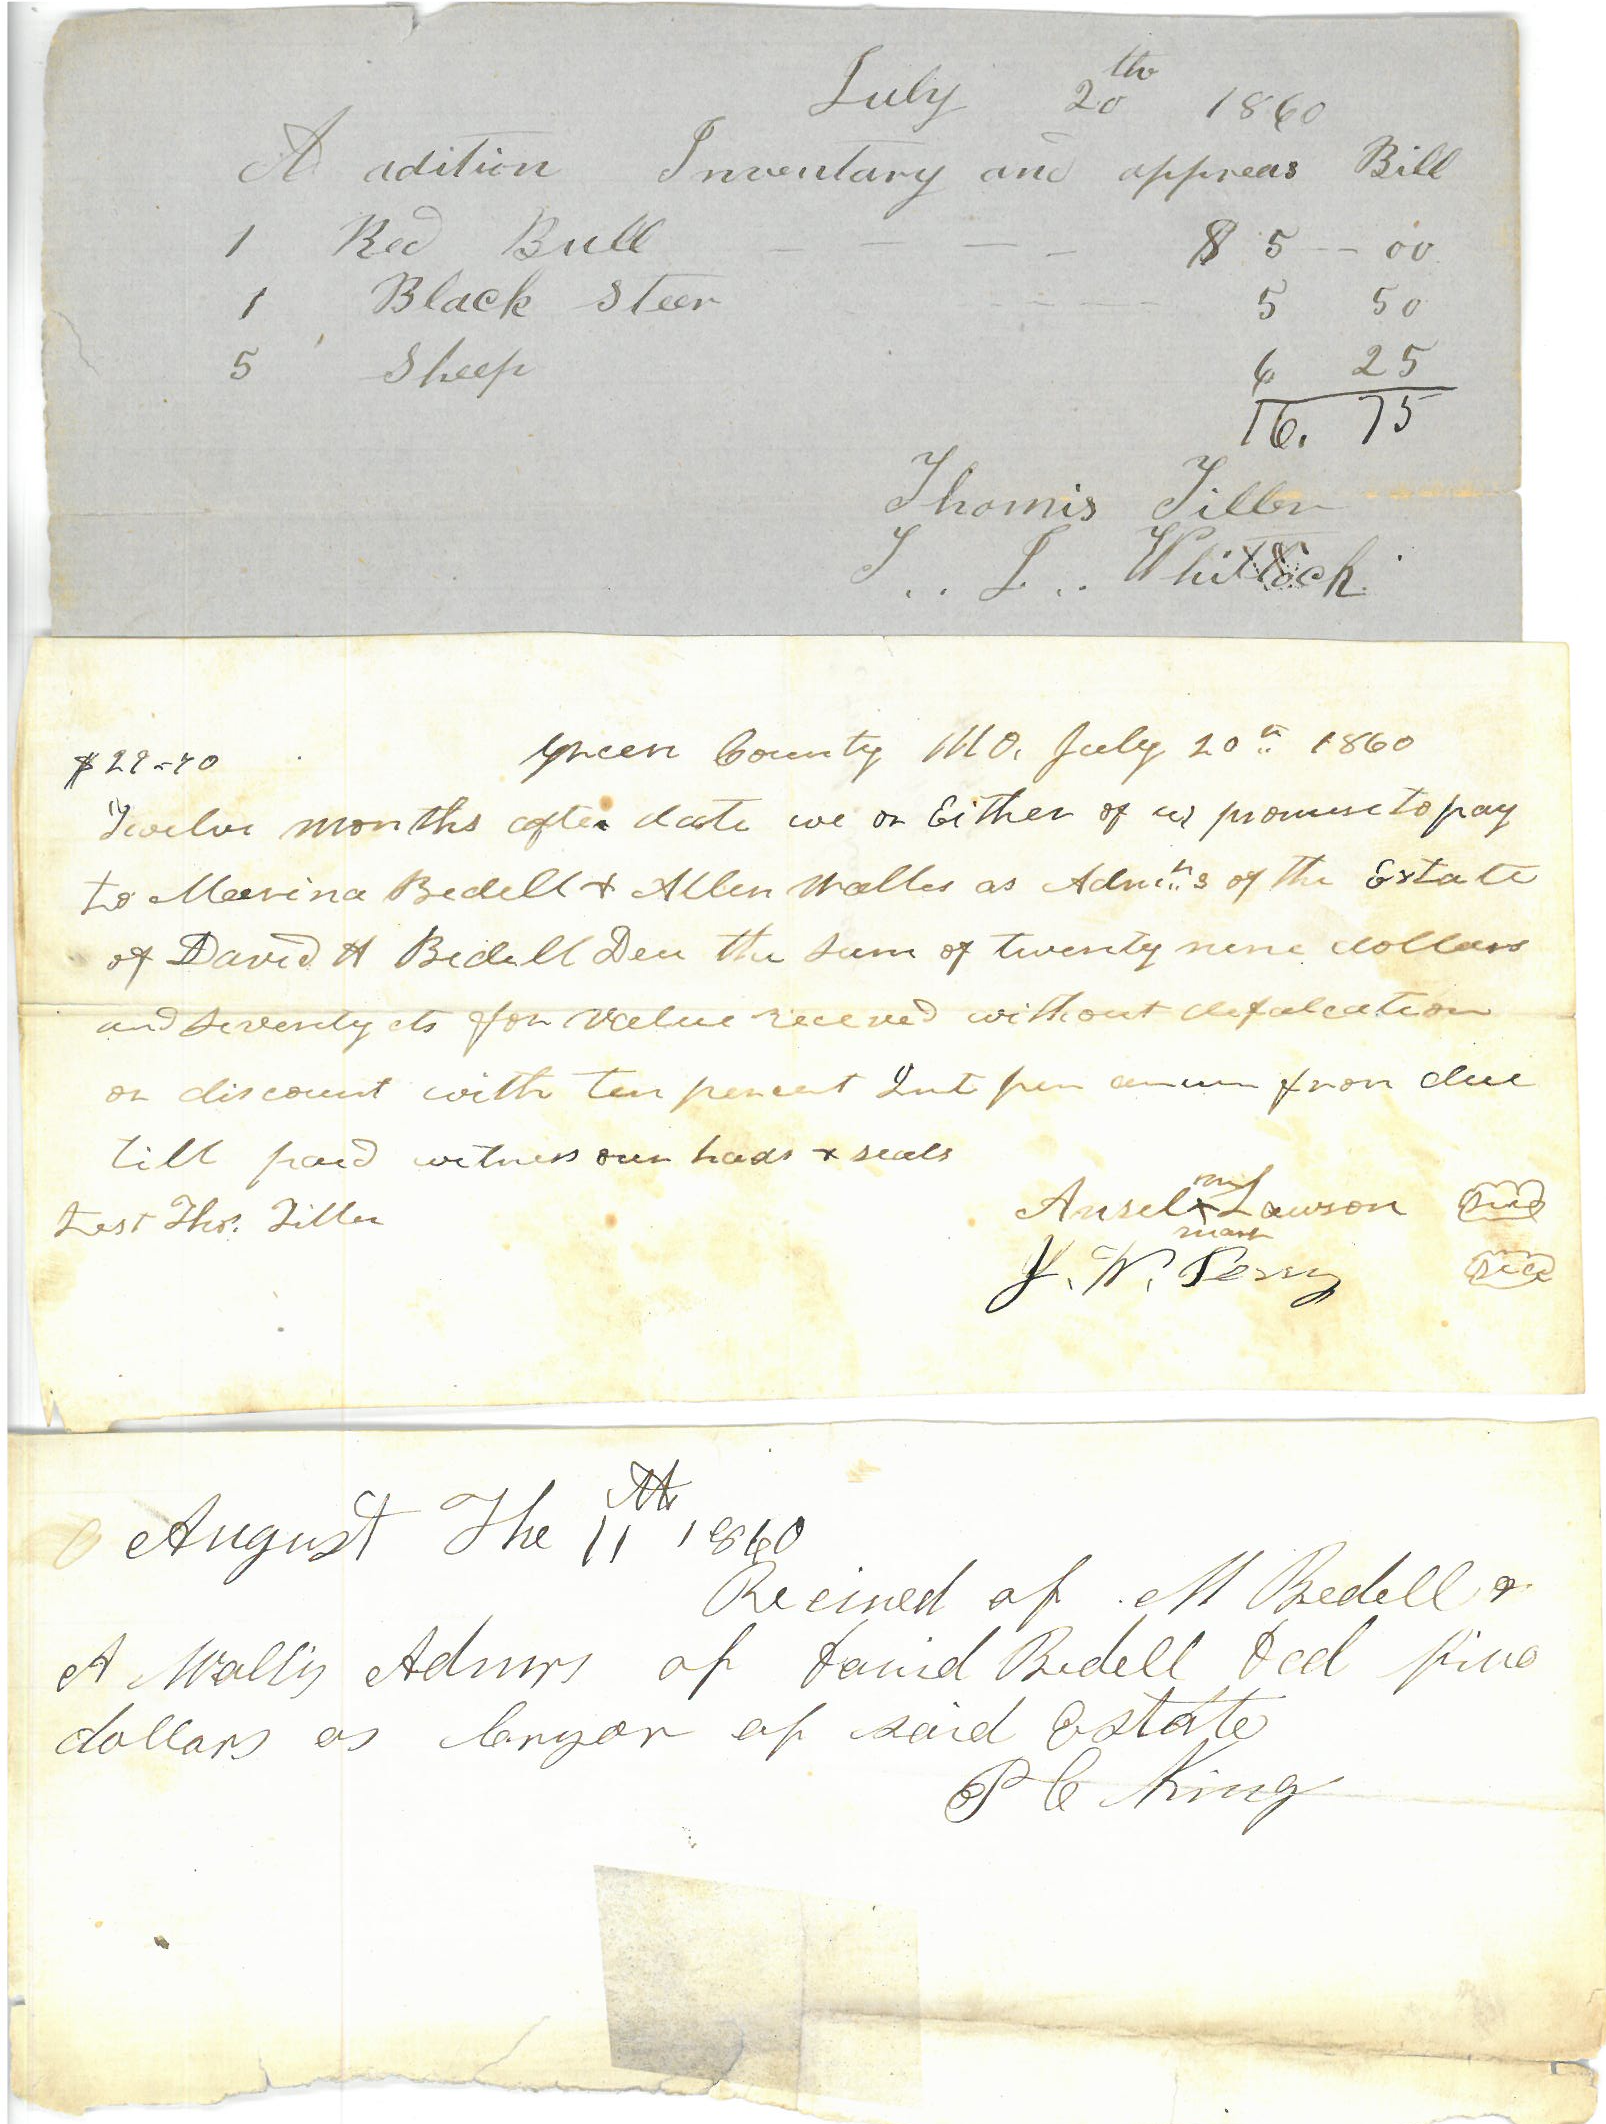 July 20th 1860
A adition Inventary and appreas Bill
1 Red Bull - - - - $ 5 - 00
1 Black Steer - - - - 5 50
5 Sheep 6 25
16. 75
Thomis Tiller
T.. L.. Whitlock
$29-70 Green County MO. July 20th 1860
Twelve months after date we or Either of us promise to pay
to Marina Bedell & Allen Walles as Admrs of the Estate
of David H Bedell Dec the sum of twenty nine dollars
and seventy cts for value receved without defalcation
or discount with ten percent Int per annum from due
till paid witness our hads & seals
Test Thos. Tiller Ansel his x mark Lawson seal
J. W. Perry seal
August The 11th 1860
Recived of M Bedell &
A Wallis Admrs of David Bedell Decd five
dollars as Cryor of said Estate
P C King